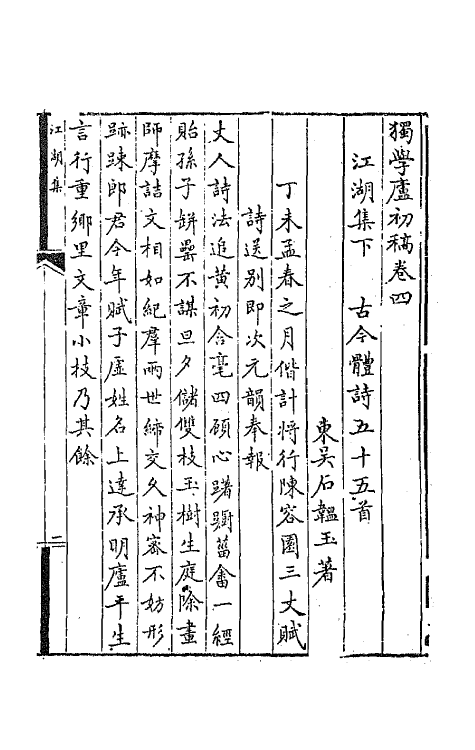 獨學廬初稿卷四
江湖集下 古今體詩五十五首
東吳石韞玉著
丁未孟春之月偕計將行陳容園三丈賦
詩送別即次元韻奉報
丈人詩法追黃初含毫四顧心躊躕菑畬一經
貽孫子缾罍不謀旦夕儲雙枝玉樹生庭除畫
師摩詰文相如紀羣兩世締交久神密不妨形
跡踈郎君今年賦子虛姓名上達承明廬平生
言行重鄉里文章小技乃其餘
江湖集
一